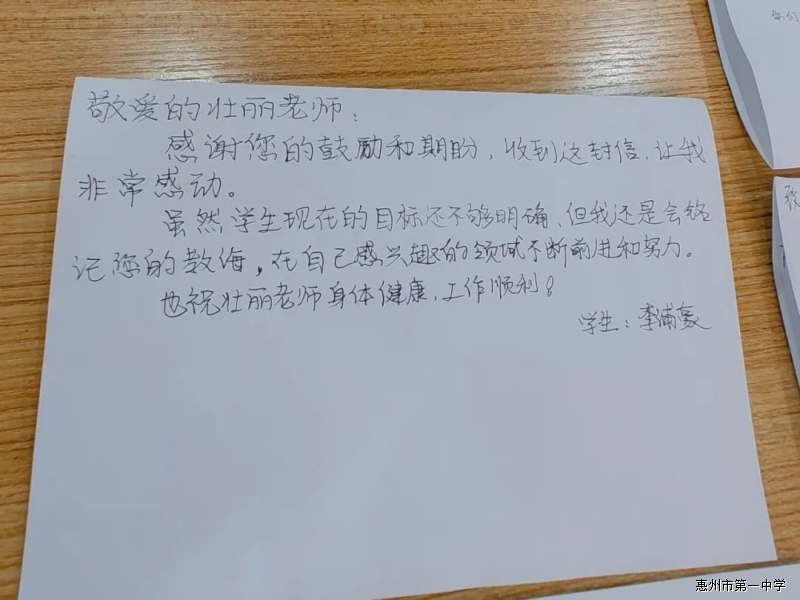 敬爱的壮丽老师：
感谢您的鼓励和期盼，收到这封信，让我
非常感动。
虽然学生现在的目标还不够明确，但我还是会铭
记您的教诲，在自己感兴趣的领域不断前进和努力。
也祝壮丽老师身体健康，工作顺利！
学生：李浦豪
我们
致
惠州市第一中学